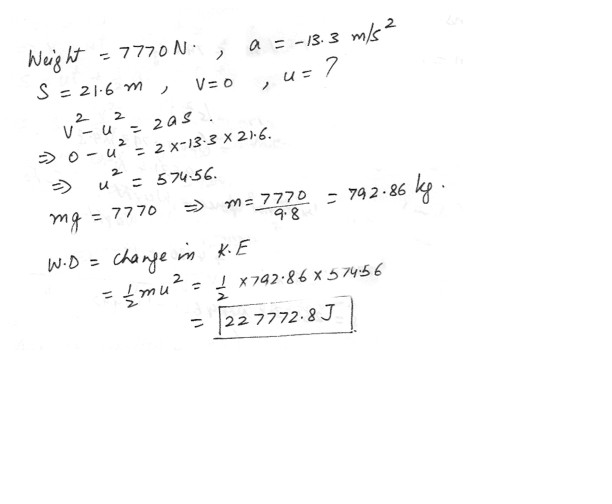 Weight = 7770 N. , a = -13.3 m/s²
S = 21.6 m , V=0 , u = ?
v² - u² = 2as.
⇒ 0 - u² = 2 x -13.3 x 21.6.
⇒ u² = 574.56.
mg = 7770 ⇒ m = 7770/9.8 = 792.86 kg.
W.D = change in K.E
= 1/2 mu² = 1/2 x 792.86 x 574.56
= 227772.8 J